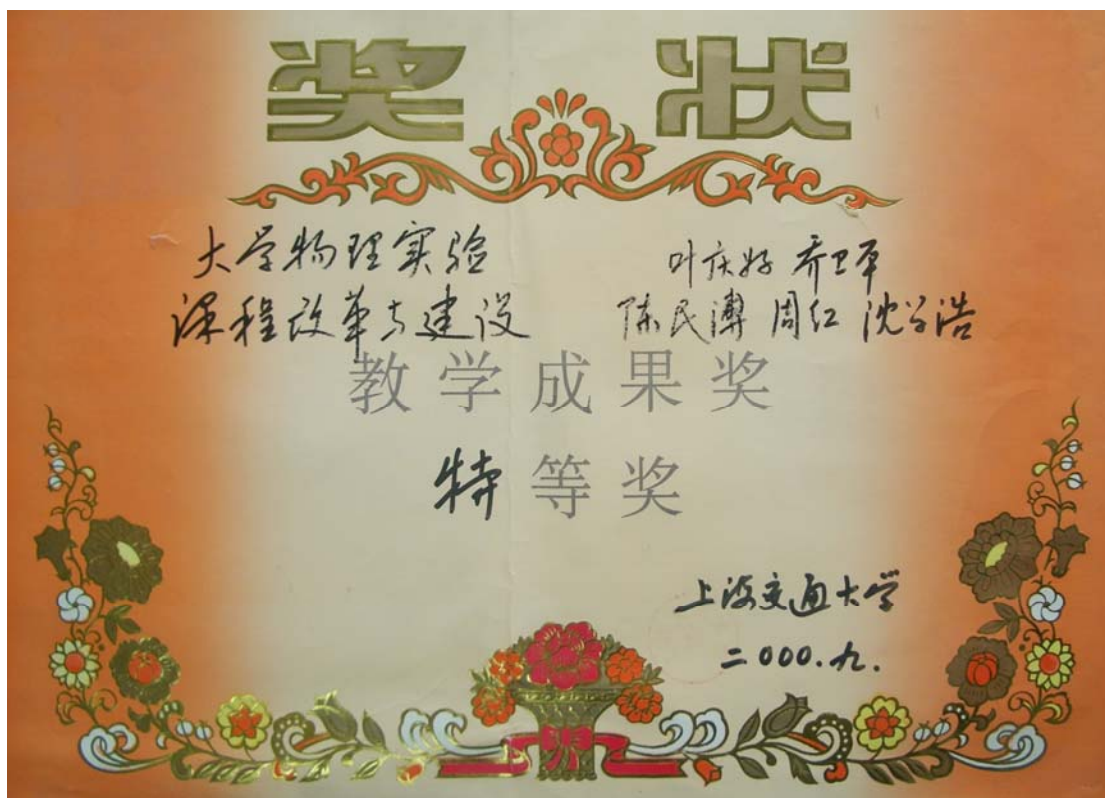 奖状
大学物理实验
课程改革与建设
叶庆好 乔卫平
陈民溥 周红 沈学浩
教学成果奖
特等奖
上海交通大学
二000.九.